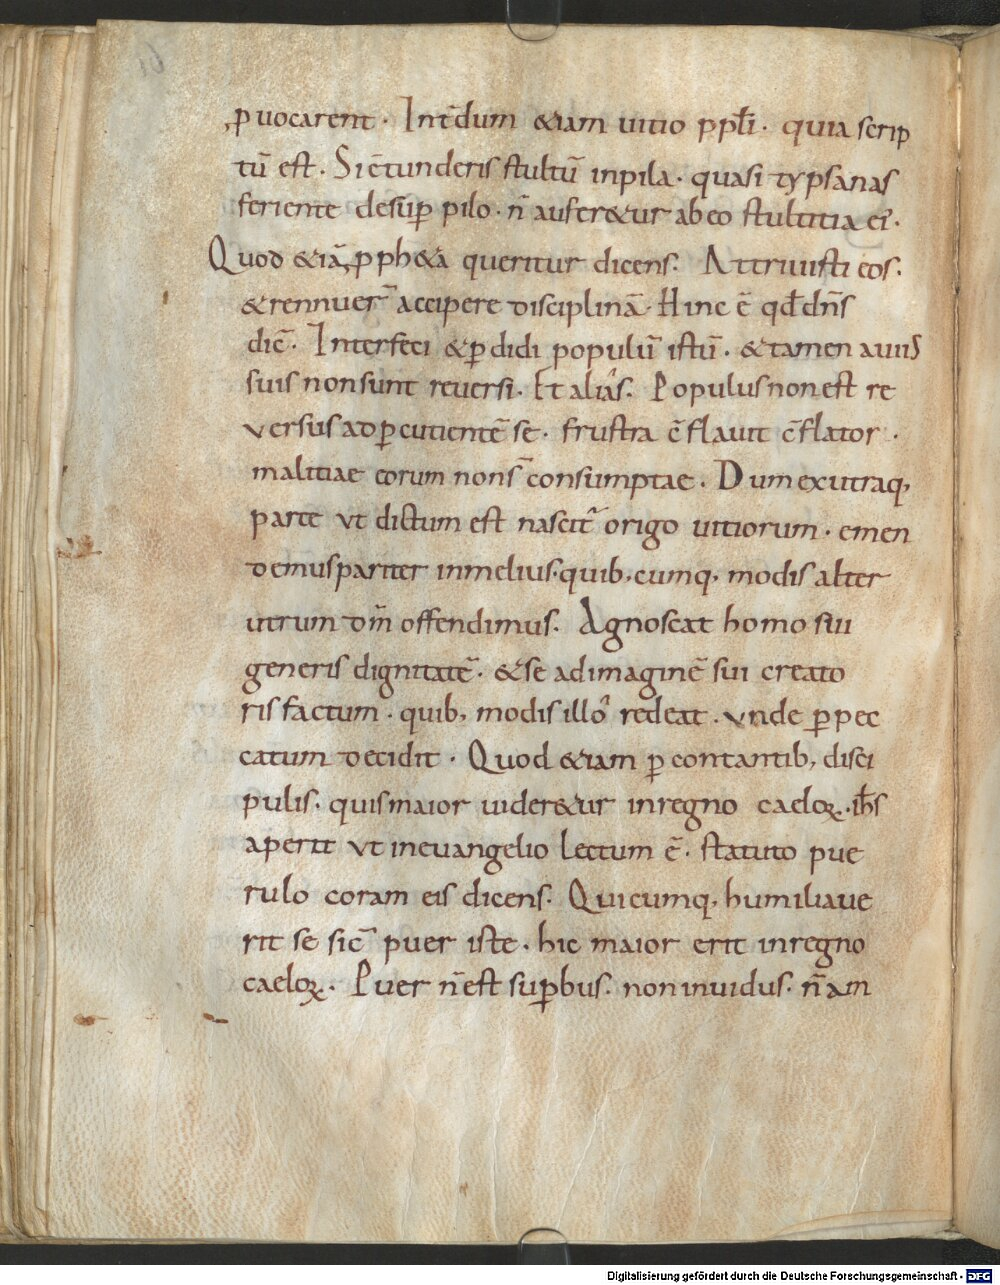 ꝓuocarent · Int̄dum &iam uitio ppl̄i · quia scrip
tū est · Si c̄tunderis stultū inpila · quasi typsanas
feriente desuꝑ pilo · n̄ aufer&ur ab eo stultitia ei᾽ ·
Quod &iā ꝓph&a queritur dicens · Attriuisti eos ·
&rennuer̄ accipere disciplinā · Hinc ē qd̄ dn̄s
dic̄ · Interfeci &ꝑdidi populū istū · &tamen auiis
suis non sunt reuersi · Et alias · Populus non est re
uersus ad ꝑcutientē se · frustra c̄flauit c̄flator ·
malitiae eorum non s̄ consumptae · Dum ex utraq,
parte ut dictum est nascit᾽ origo uitiorum · emen
demus pariter in melius · quib, cumq, modis alter
utrum dm̄ offendimus · Agnoscat homo sui
generis dignitatē · &se ad imaginē sui creato
ris factum · quib, modis illo redeat · unde ꝑ pec
catum decidit · Quod &iam ꝑcontantib, disci
pulis · quis maior uider&ur in regno caeloꝝ · ih̄s
aperit ut in euangelio lectum ē · statuto pue
rulo coram eis dicens · Quicumq, humiliaue
rit se sic̄ puer iste · hic maior erit in regno
caeloꝝ · Puer n̄ est suꝑbus · non inuidus · n̄ am
Digitalisierung gefördert durch die Deutsche Forschungsgemeinschaft - DFG